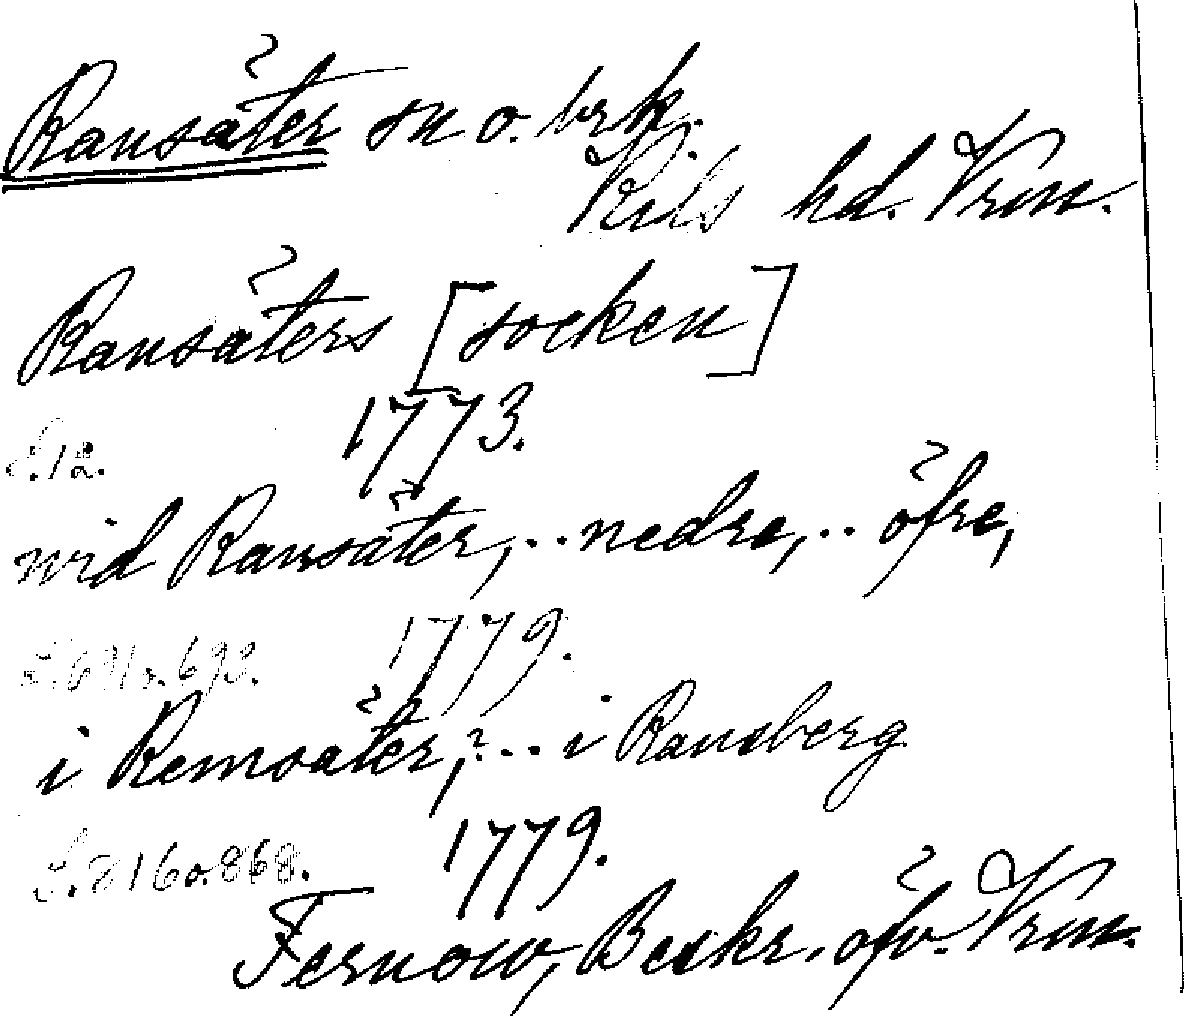 Ransäter sn o. brk.
Kils hd. Vrm.
Ransäters [socken]
1773.
S. 12.
wid Ransäter, .. nedre, .. öfre,
1779.
S. 691 o. 692.
i Remsäter, .. i Ransberg
1779.
S. 216 o. 868.
Fernow, Beskr. öfv. Vrm.